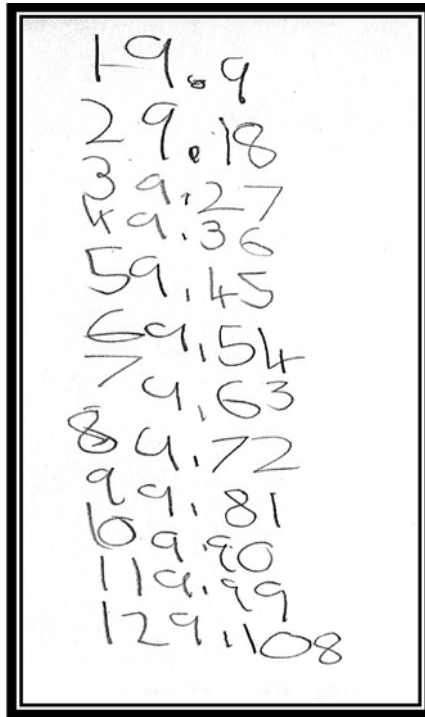 19.9
29.18
39.27
49.36
59.45
69.54
79.63
89.72
99.81
109.90
119.99
129.108